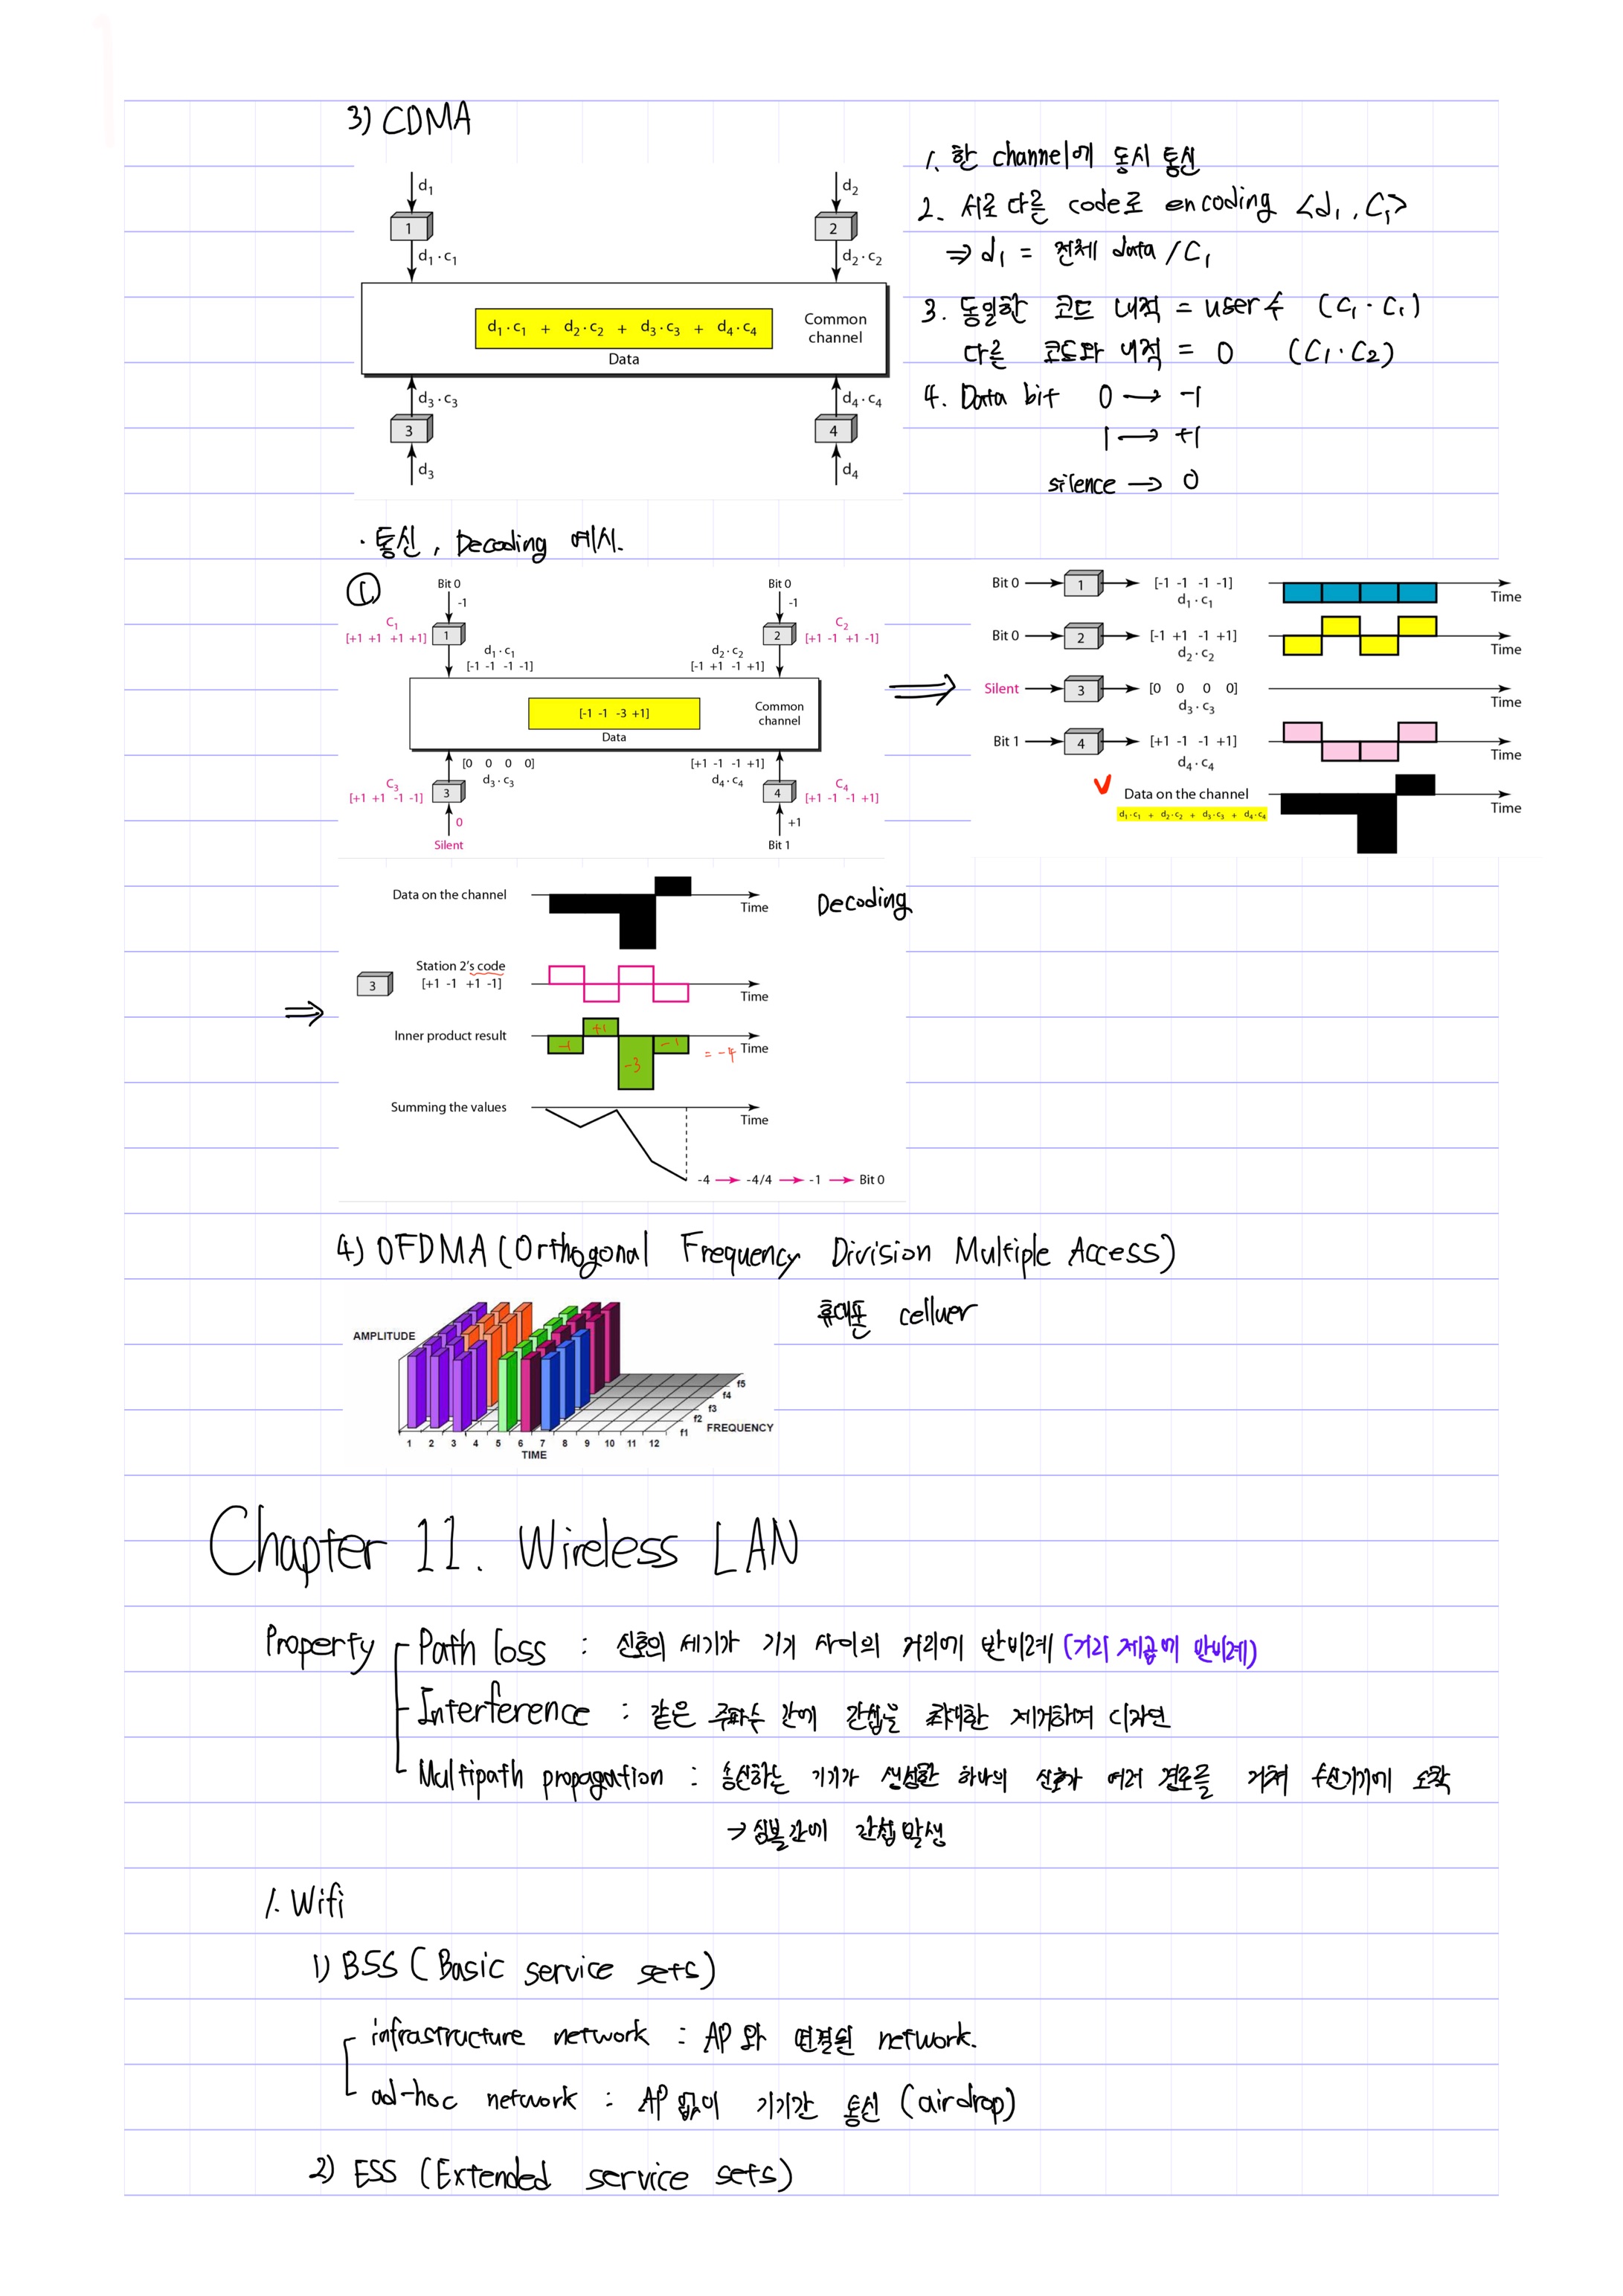 3) CDMA
d₁
1
d₁·c₁
d₂
2
d₂·c₂
d₁·c₁ + d₂·c₂ + d₃·c₃ + d₄·c₄
Data
Common
channel
d₃·c₃
3
d₃
d₄·c₄
4
d₄
1. 한 channel에 동시 통신
2. 서로 다른 code로 encoding <d₁, C₁>
⇒ d₁ = 전체 data / C₁
3. 동일한 코드 내적 = user수 (C₁·C₁)
다른 코드와 내적 = 0 (C₁·C₂)
4. Data bit 0 → -1
1 → +1
silence → 0
· 통신, Decoding 예시.
①
Bit 0
-1
C₁
[+1 +1 +1 +1]
1
d₁·c₁
[-1 -1 -1 -1]
Bit 0
-1
2
C₂
[+1 -1 +1 -1]
d₂·c₂
[-1 +1 -1 +1]
[-1 -1 -3 +1]
Data
Common
channel
[0 0 0 0]
d₃·c₃
C₃
[+1 +1 -1 -1]
3
0
Silent
[+1 -1 -1 +1]
d₄·c₄
4
C₄
[+1 -1 -1 +1]
+1
Bit 1
⇒
Bit 0 1 [-1 -1 -1 -1]
d₁·c₁
Time
Bit 0 2 [-1 +1 -1 +1]
d₂·c₂
Time
Silent 3 [0 0 0 0]
d₃·c₃
Time
Bit 1 4 [+1 -1 -1 +1]
d₄·c₄
Time
Data on the channel
d₁·c₁ + d₂·c₂ + d₃·c₃ + d₄·c₄
Time
⇒
Data on the channel
Time
Decoding
3
Station 2's code
[+1 -1 +1 -1]
Time
Inner product result
-1 +1 -3 -1 = -4
Time
Summing the values
Time
-4 → -4/4 → -1 → Bit 0
4) OFDMA (Orthogonal Frequency Division Multiple Access)
휴대폰 celluer
AMPLITUDE
f5
f4
f3
f2
f1
FREQUENCY
1 2 3 4 5 6 7 8 9 10 11 12
TIME
Chapter 11. Wireless LAN
Property
Path loss : 신호의 세기가 기기 사이의 거리에 반비례 (거리 제곱에 반비례)
Interference : 같은 주파수 간에 간섭을 최대한 제거하며 디자인
Multipath propagation : 송신하는 기기가 생성한 하나의 신호가 여러 경로를 거쳐 수신기기에 도착
→ 심볼간에 간섭 발생
1. Wifi
1) BSS (Basic service sets)
infrastructure network : AP와 연결된 network.
ad-hoc network : AP 없이 기기간 통신 (airdrop)
2) ESS (Extended service sets)